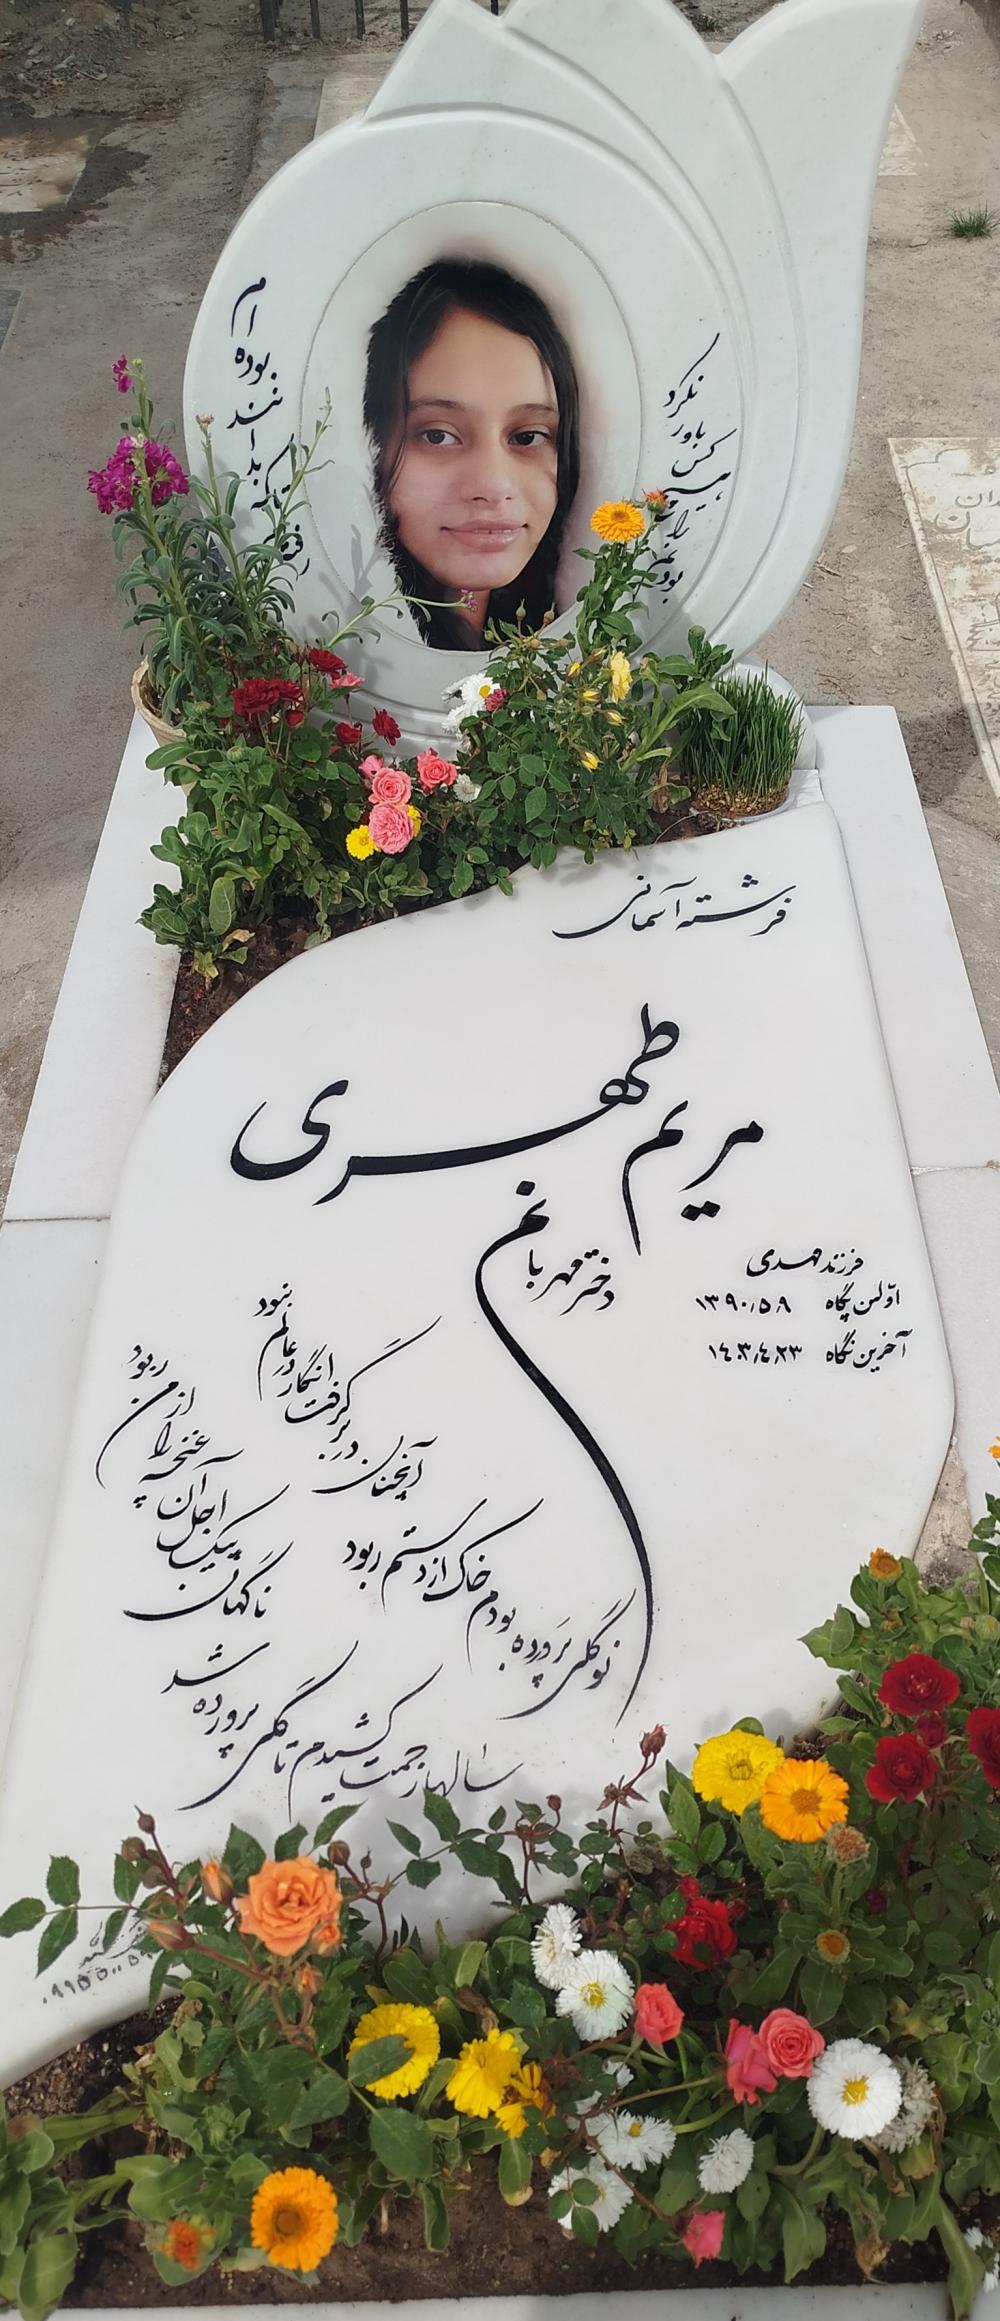 بودنم را هیچ کس باور نکرد
رفته ام تا که بدانند بوده ام
فرشته آسمانی
مریم طهری
دختر مهربانم
فرزند مهدی
اولین پگاه ۱۳۹۰/۵/۹
آخرین نگاه ۱۴۰۳/۴/۲۳
سالها زحمت کشیدم تا گلی پرورده شد
ناگهان پیک اجل آن غنچه را از من ربود
نوگلی پرورده بودم خاک از دستم ربود
آنچنان در بر گرفت انگار در عالم نبود